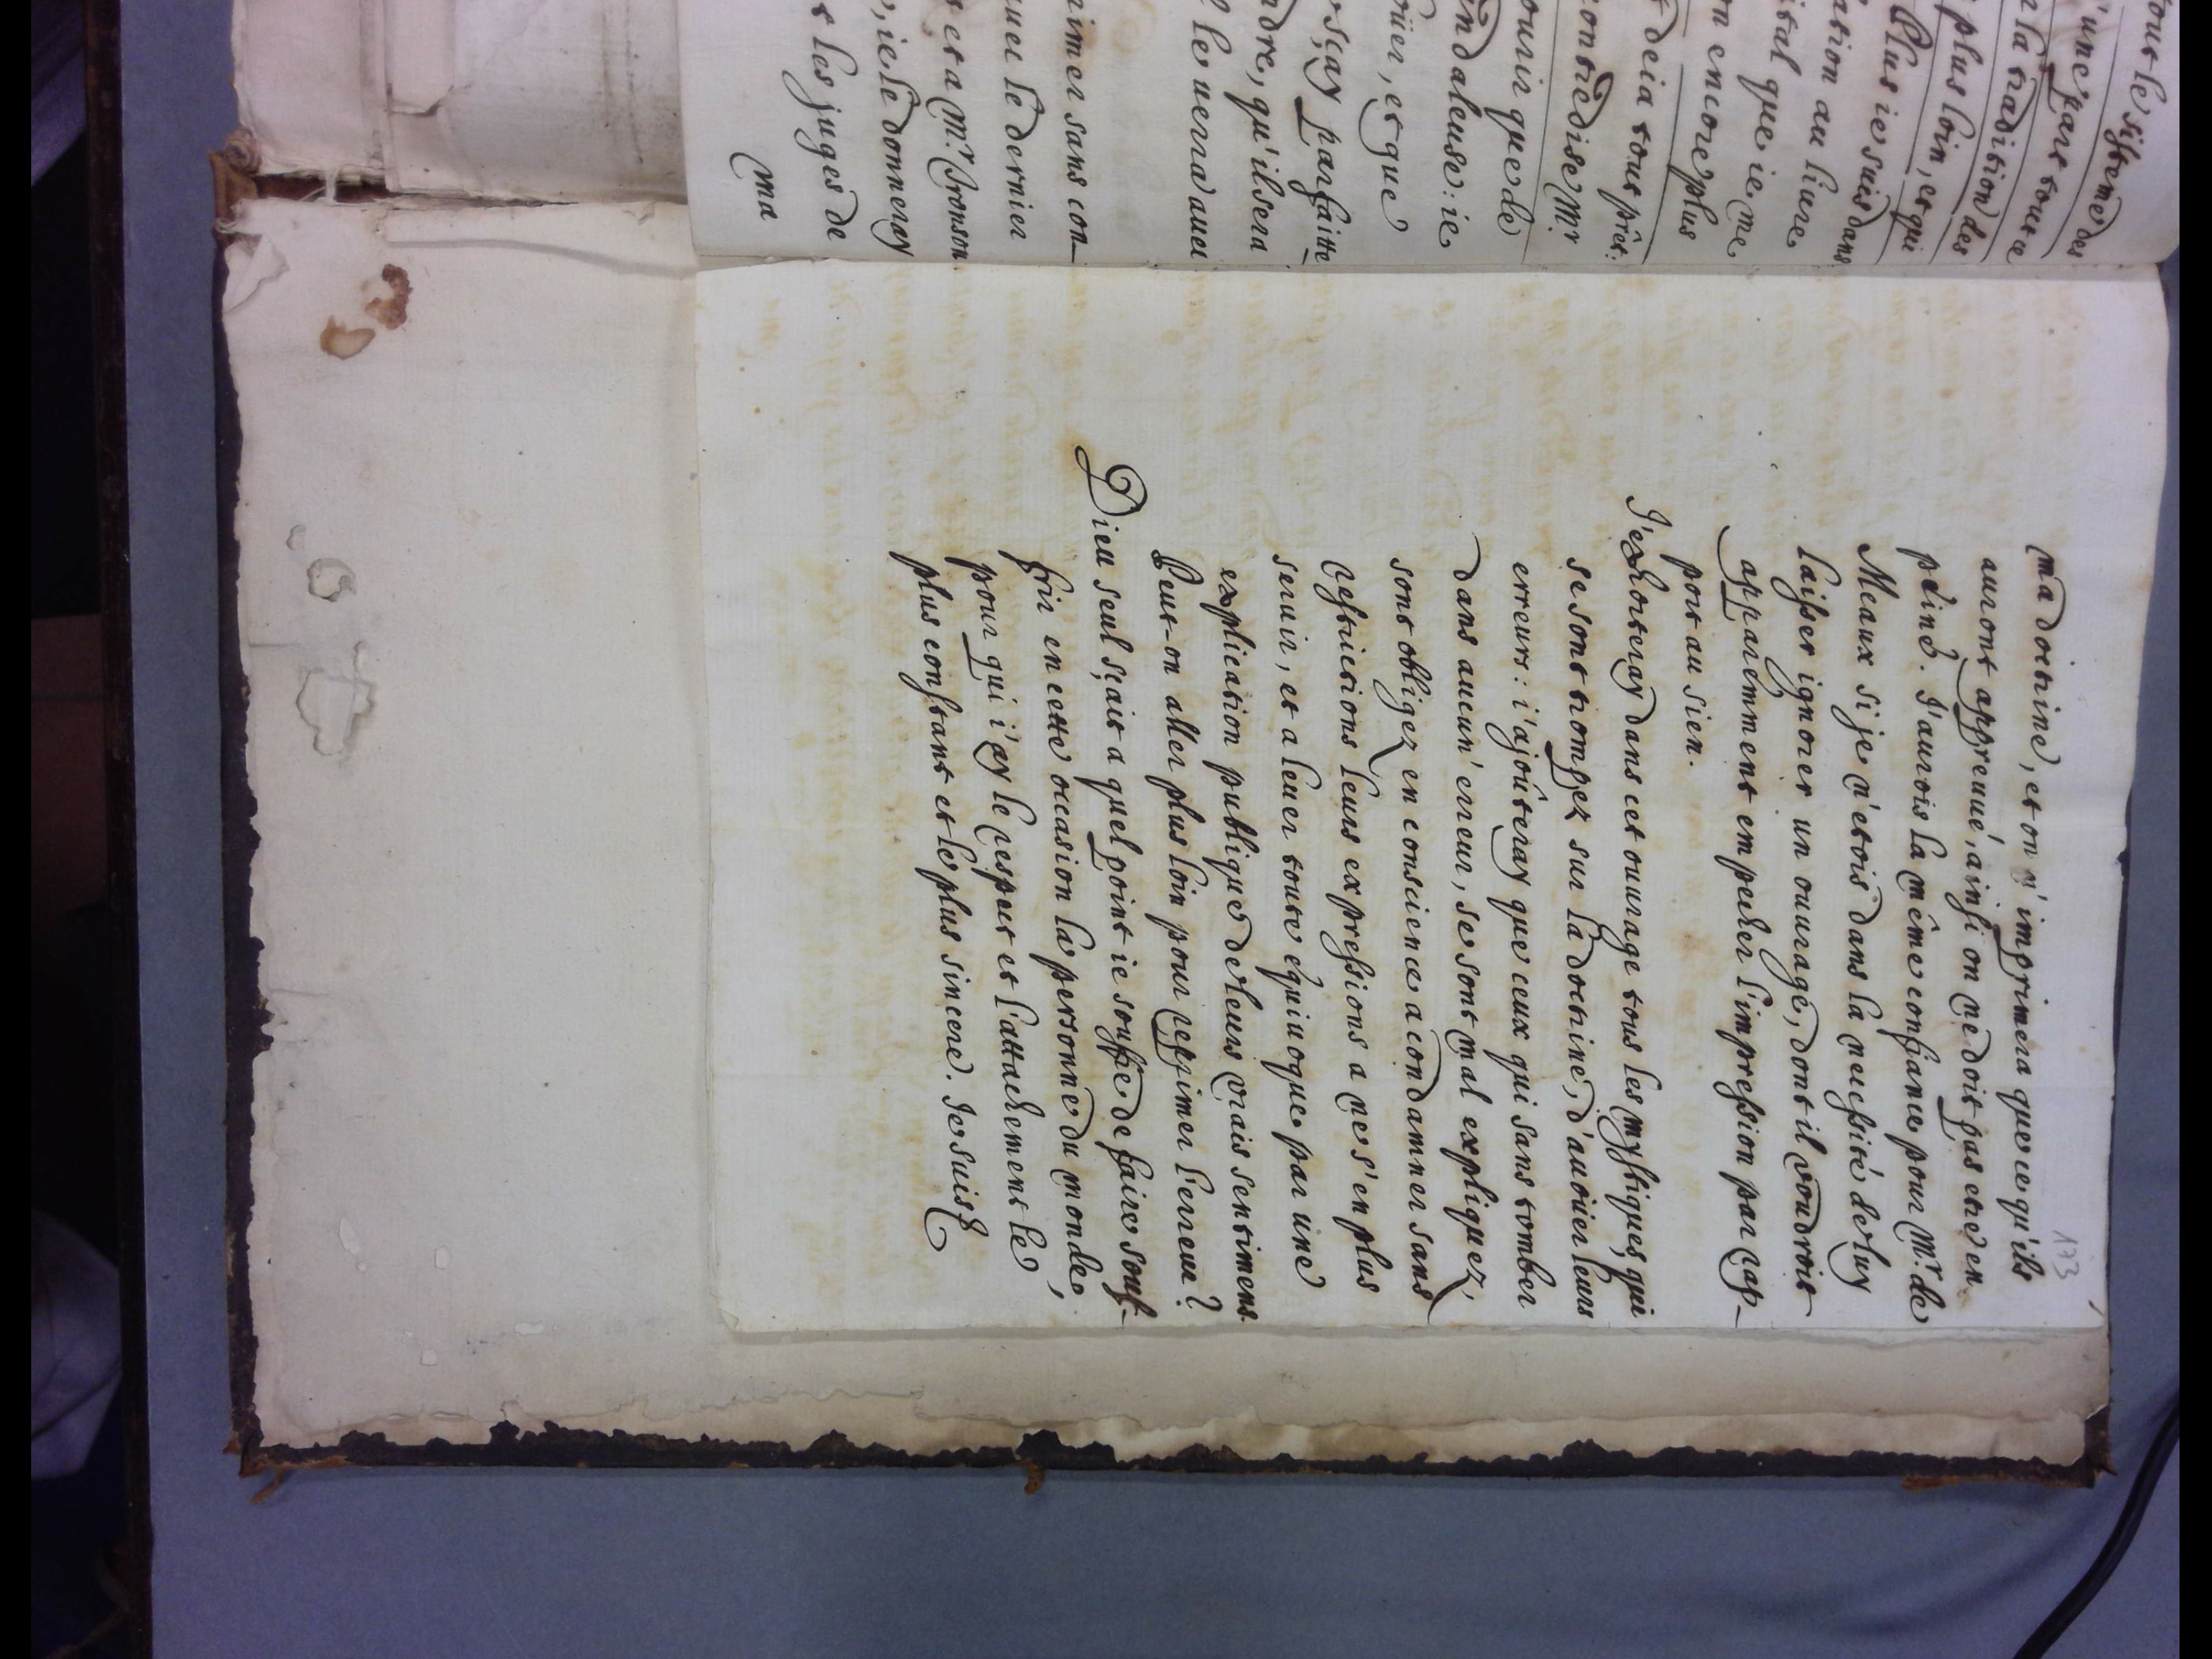 out le sisteme des
'une part toute
la tradition des
plus loin, et qui
Plus ie suis dans
ation au liure
ital que ie me
on encore plus
t deia tout prêt.
contredise Mr
ourir que de
andaleuse: ie
oüer, et que
sçay parfaitte
ndre, qu'il sera
le uerra auec
rimer sans con-
auec le dernier
s et a Mr. Tronson
, ie le donneray
t les juges de
ma
173
ma doctrine, et on n'imprimera que ce qu'ils
auront appreuué, ainsi on ne doit pas etre en
peine. J'aurois la même confiance pour Mr. de
Meaux si je n'etois dans la necessité de luy
laisser ignorer un ouurage, dont il voudroit
apparemment empecher l'impression par rap-
port au sien.
J'exhorteray dans cet ouurage tous les mystiques, qui
se sont trompez sur la doctine, d'auoüer leurs
erreurs: i'ajoûteray que ceux qui sans tomber
dans aucun' erreur, se sont mal expliquez,
sont obligez en conscience a condamner sans
restrictions leurs expressions a ne s'en plus
seruir, et a leuer toute equiuoque par une
explication publique de leurs vrais sentimens
Peut-on aller plus loin pour reprimer l'erreur?
Dieu seul sçait a quel point ie souffre de faire souf-
frir en cette occasion la personne du monde,
pour qui i'ay le respect et l'attachement le
plus constant et le plus sincere. Je suis &